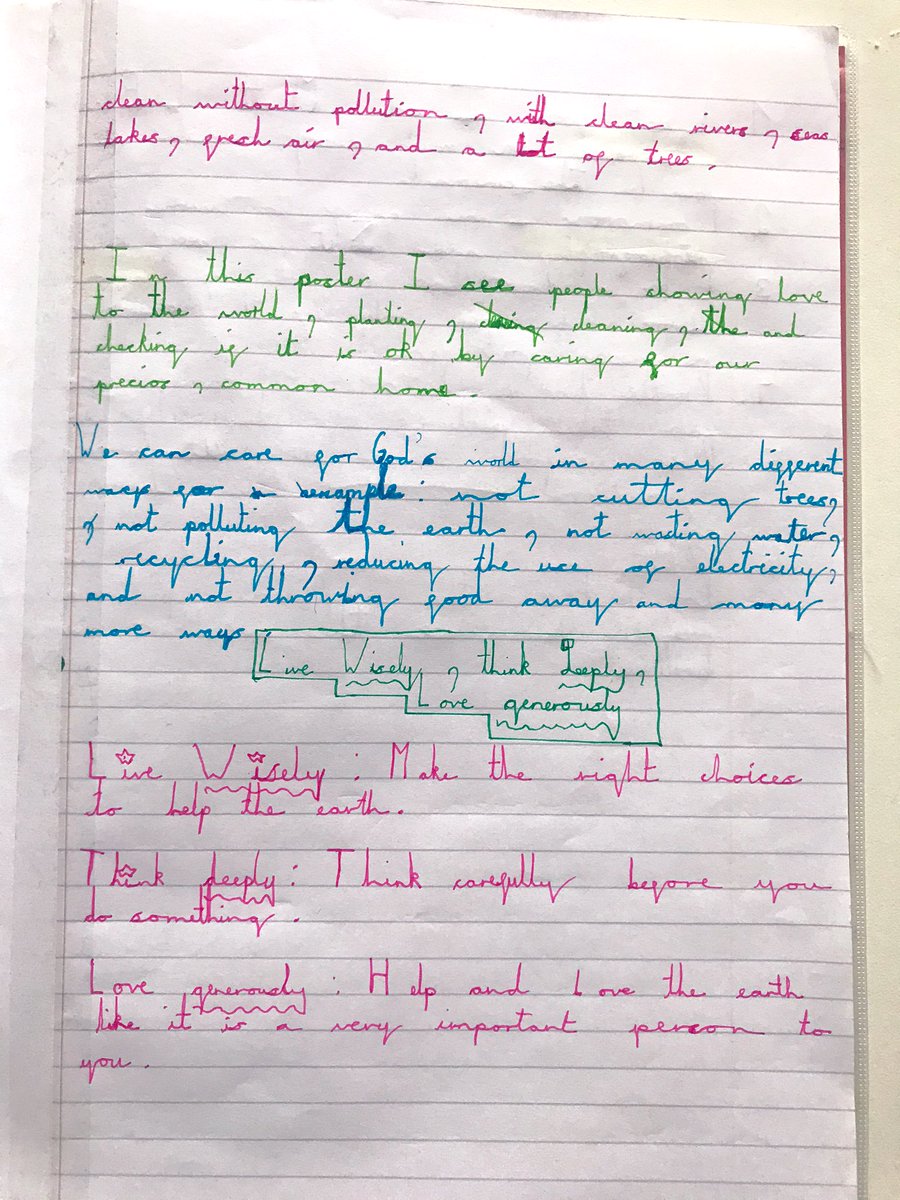 clean without pollution, with clean rivers, seas
lakes, fresh air, and a lot of trees.
In this poster I see people showing love
to the world, planting, cleaning, the and
checking if it is ok by caring for our
precios, common home.
We can care for God's world in many different
ways for a example: not cutting trees,
not polluting the earth, not wasting water,
recycling, reducing the use of electricity,
and not throwing food away and many
more ways
Live Wisely, think Deeply,
Love generously
Live Wisely: Make the right choices
to help the earth.
Think deeply: Think carefully before you
do something.
Love generously: Help and Love the earth
like it is a very important person to
you.